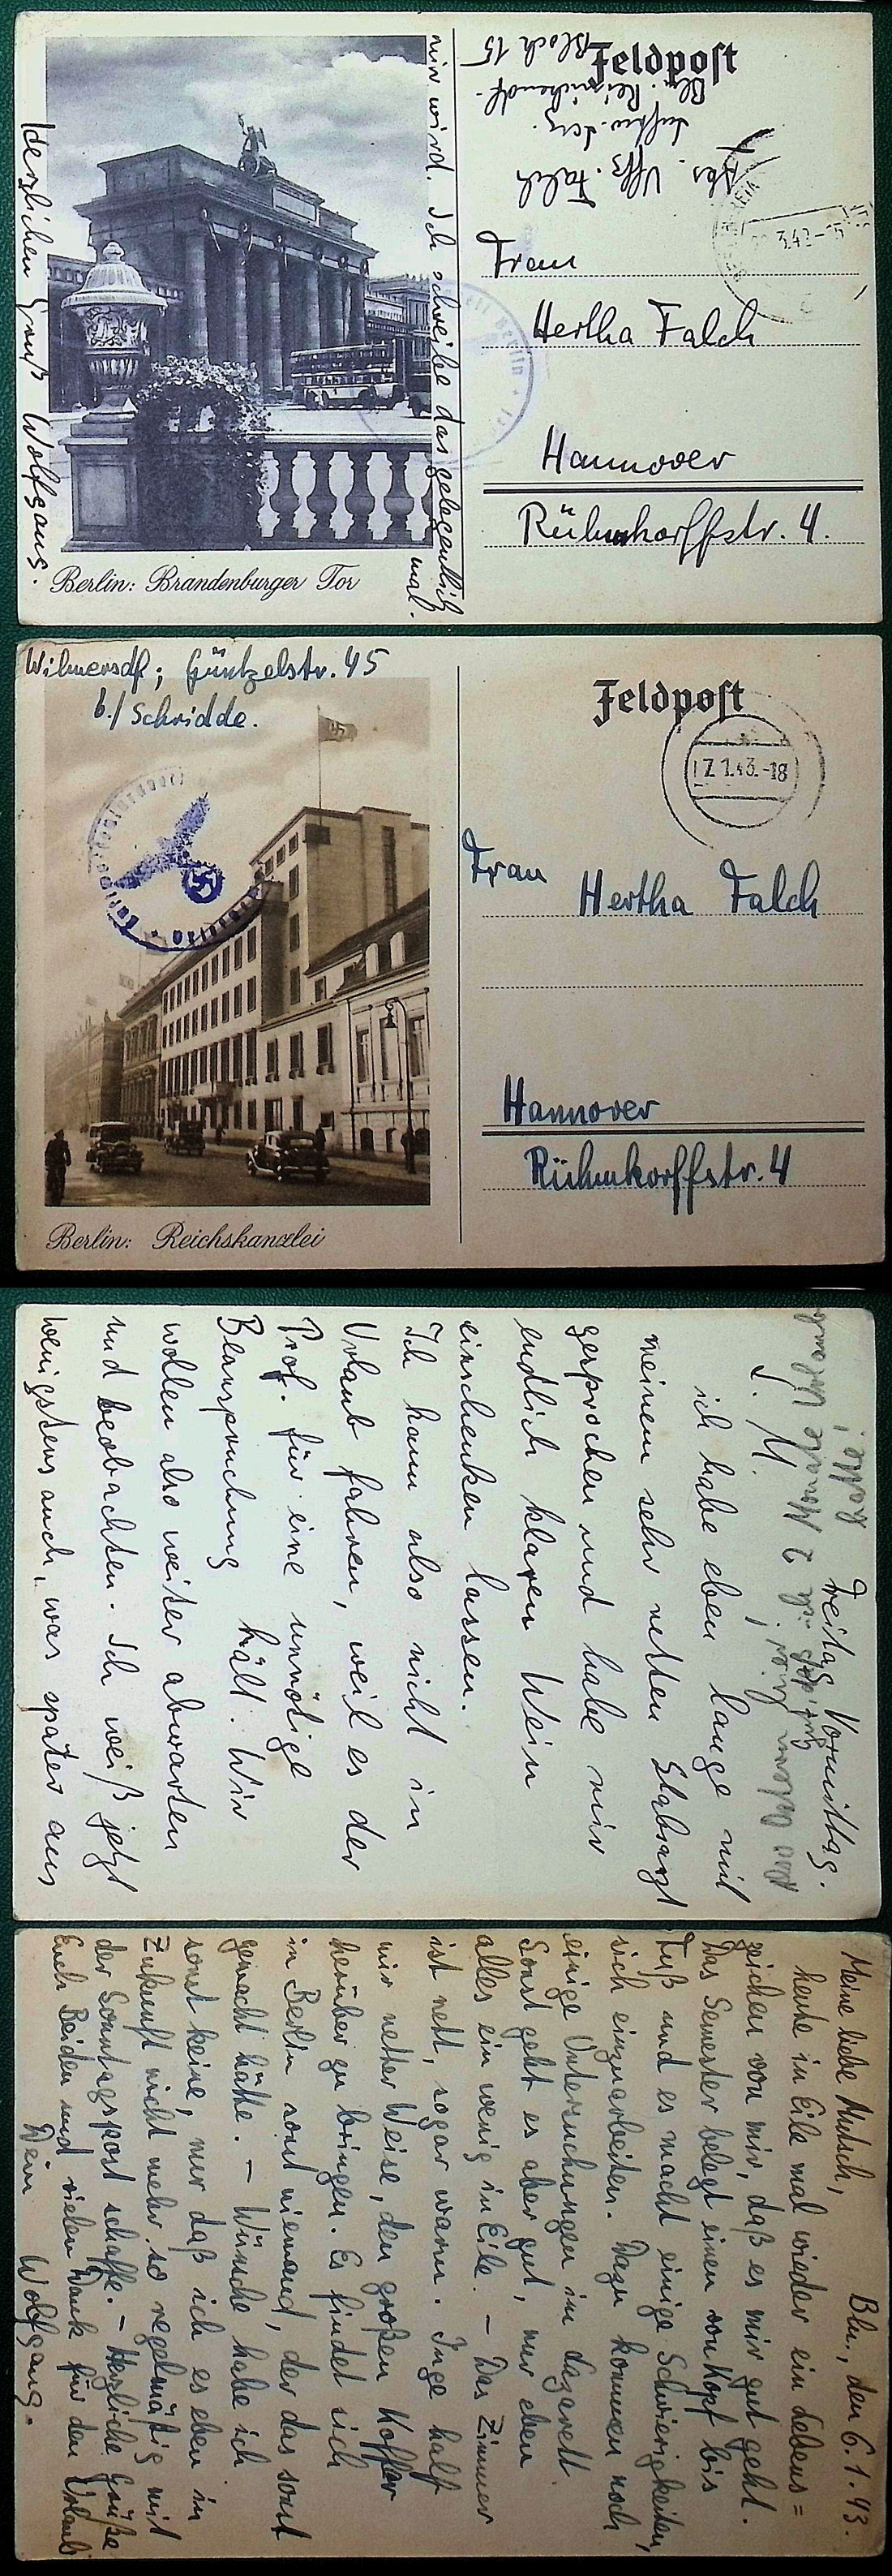 Feldpost
Abs. Uffz. Falch
Luftw. Laz.
Bln. Reinickendf.
Block 15
3.42-15
Frau
Hertha Falch
Hannover
Rühmkorffstr. 4.
mir wird. Ich schreibe das gelegentlich
mal.
Herzlichen Gruß Wolfgang.
Berlin: Brandenburger Tor
Wilmersdf; Güntzelstr. 45
b./ Schridde.
Feldpost
7.1.43.-18
Frau Hertha Falch
Hannover
Rühmkorffstr. 4
Berlin: Reichskanzlei
Freitag Vormittag.
L. M.!
ich habe eben lange mit
meinem sehr netten Stabsarzt
gesprochen und habe mir
endlich klaren Wein
einschenken lassen.
Ich kann also nicht in
Urlaub fahren, weil es der
Prof. für eine unnötige
Beanspruchung hält. Wir
wollen also weiter abwarten
und beobachten. Ich weiß jetzt
wenigstens auch, was später aus
2 Monate Urlaub
hatte!
Bln., den 6.1.43.
Meine liebe Mutsch,
heute in Eile mal wieder ein Lebens=
zeichen von mir, daß es mir gut geht.
Das Semester belegt einen von Kopf bis
Fuß und es macht einige Schwierigkeiten,
sich einzuarbeiten. Dazu kommen noch
einige Untersuchungen im Lazarett.
Sonst geht es aber gut, nur eben
alles ein wenig in Eile. – Das Zimmer
ist nett, sogar warm. Inge half
mir netter Weise, den großen Koffer
herüber zu bringen. Es findet sich
in Berlin sonst niemand, der das sonst
gemacht hätte. – Wünsche habe ich
sonst keine, nur daß ich es eben in
Zukunft nicht mehr so regelmäßig mit
der Sonntagspost schaffe. – Herzliche Grüße
Euch Beiden und vielen Dank für den Urlaub
Dein Wolfgang.